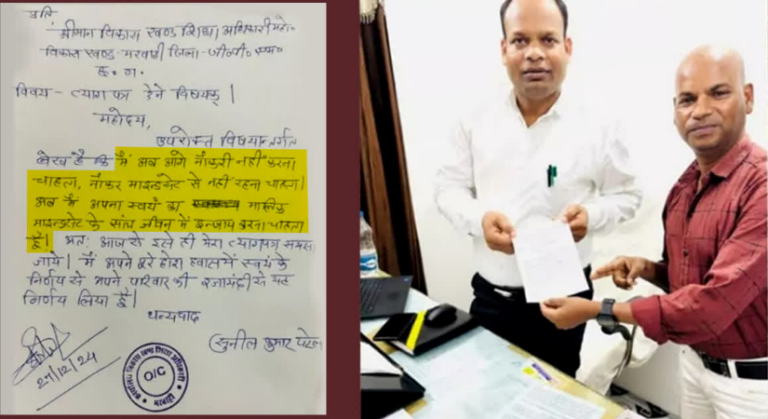 प्रति
श्रीमान विकास खण्ड शिक्षा अधिकारी महो०
विकास खण्ड - मरवाही जिला - जी०पी०एम०
छ. ग.
विषय - त्याग पत्र देने विषयक् |
महोदय,
उपरोक्त विषयान्तर्गत
लेख है कि मैं अब आगे नौकरी नहीं करना
चाहता, नौकर माइन्डसेट से नहीं रहना चाहता |
अब मैं अपना स्वयं का मालिक
माइन्डसेट के साथ जीवन में इन्जाय करना चाहता
हूँ | अतः आज से इसे ही मेरा त्यागपत्र समझा
जाये | मैं अपने पूरे होश हवास में स्वयं के
निर्णय से अपने परिवार की रजामंदी से यह
निर्णय लिया हूँ |
धन्यवाद
सुनील कुमार पटेल
27/12/24
O/C